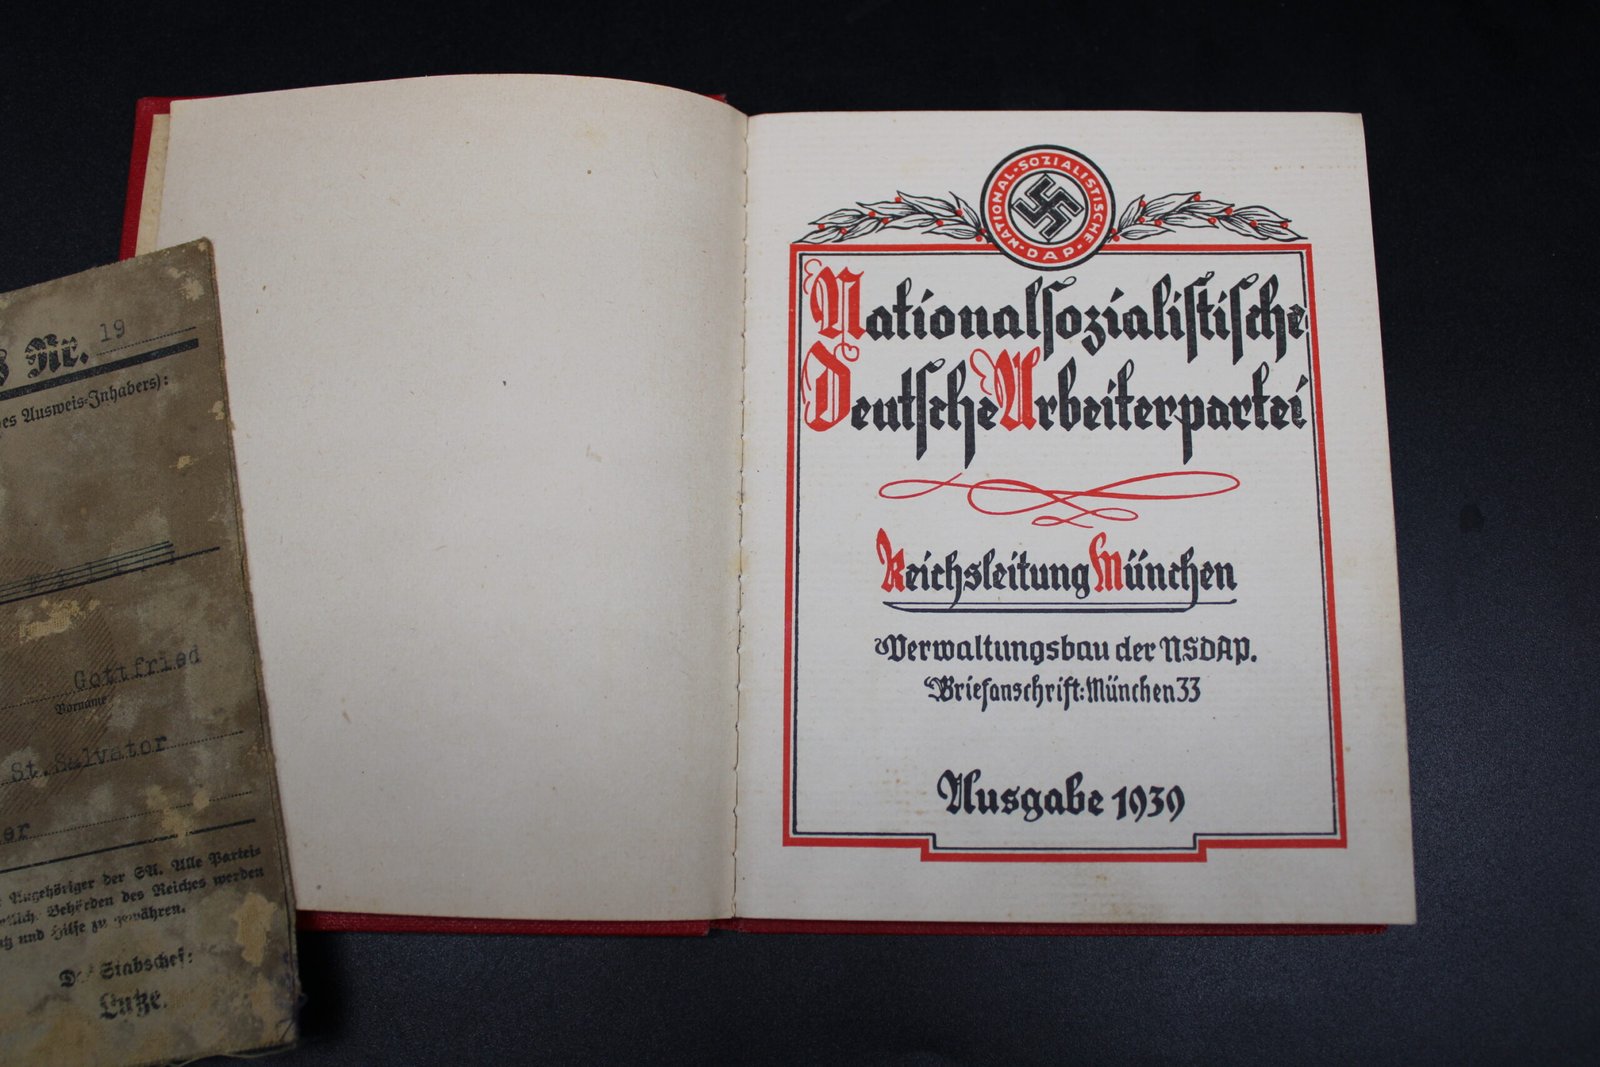 s Nr. 19
des Ausweis-Inhabers):
Gottfried
Vorname
St. Salvator
er
Angehöriger der SA. Alle Partei-
Behörden des Reiches werden
und Hilfe zu gewähren.
Der Stabschef:
Lutze.
NATIONAL-SOZIALISTISCHE D.A.P.
Nationalsozialistische
Deutsche Arbeiterpartei
Reichsleitung München
Verwaltungsbau der NSDAP.
Briefanschrift: München 33
Ausgabe 1939